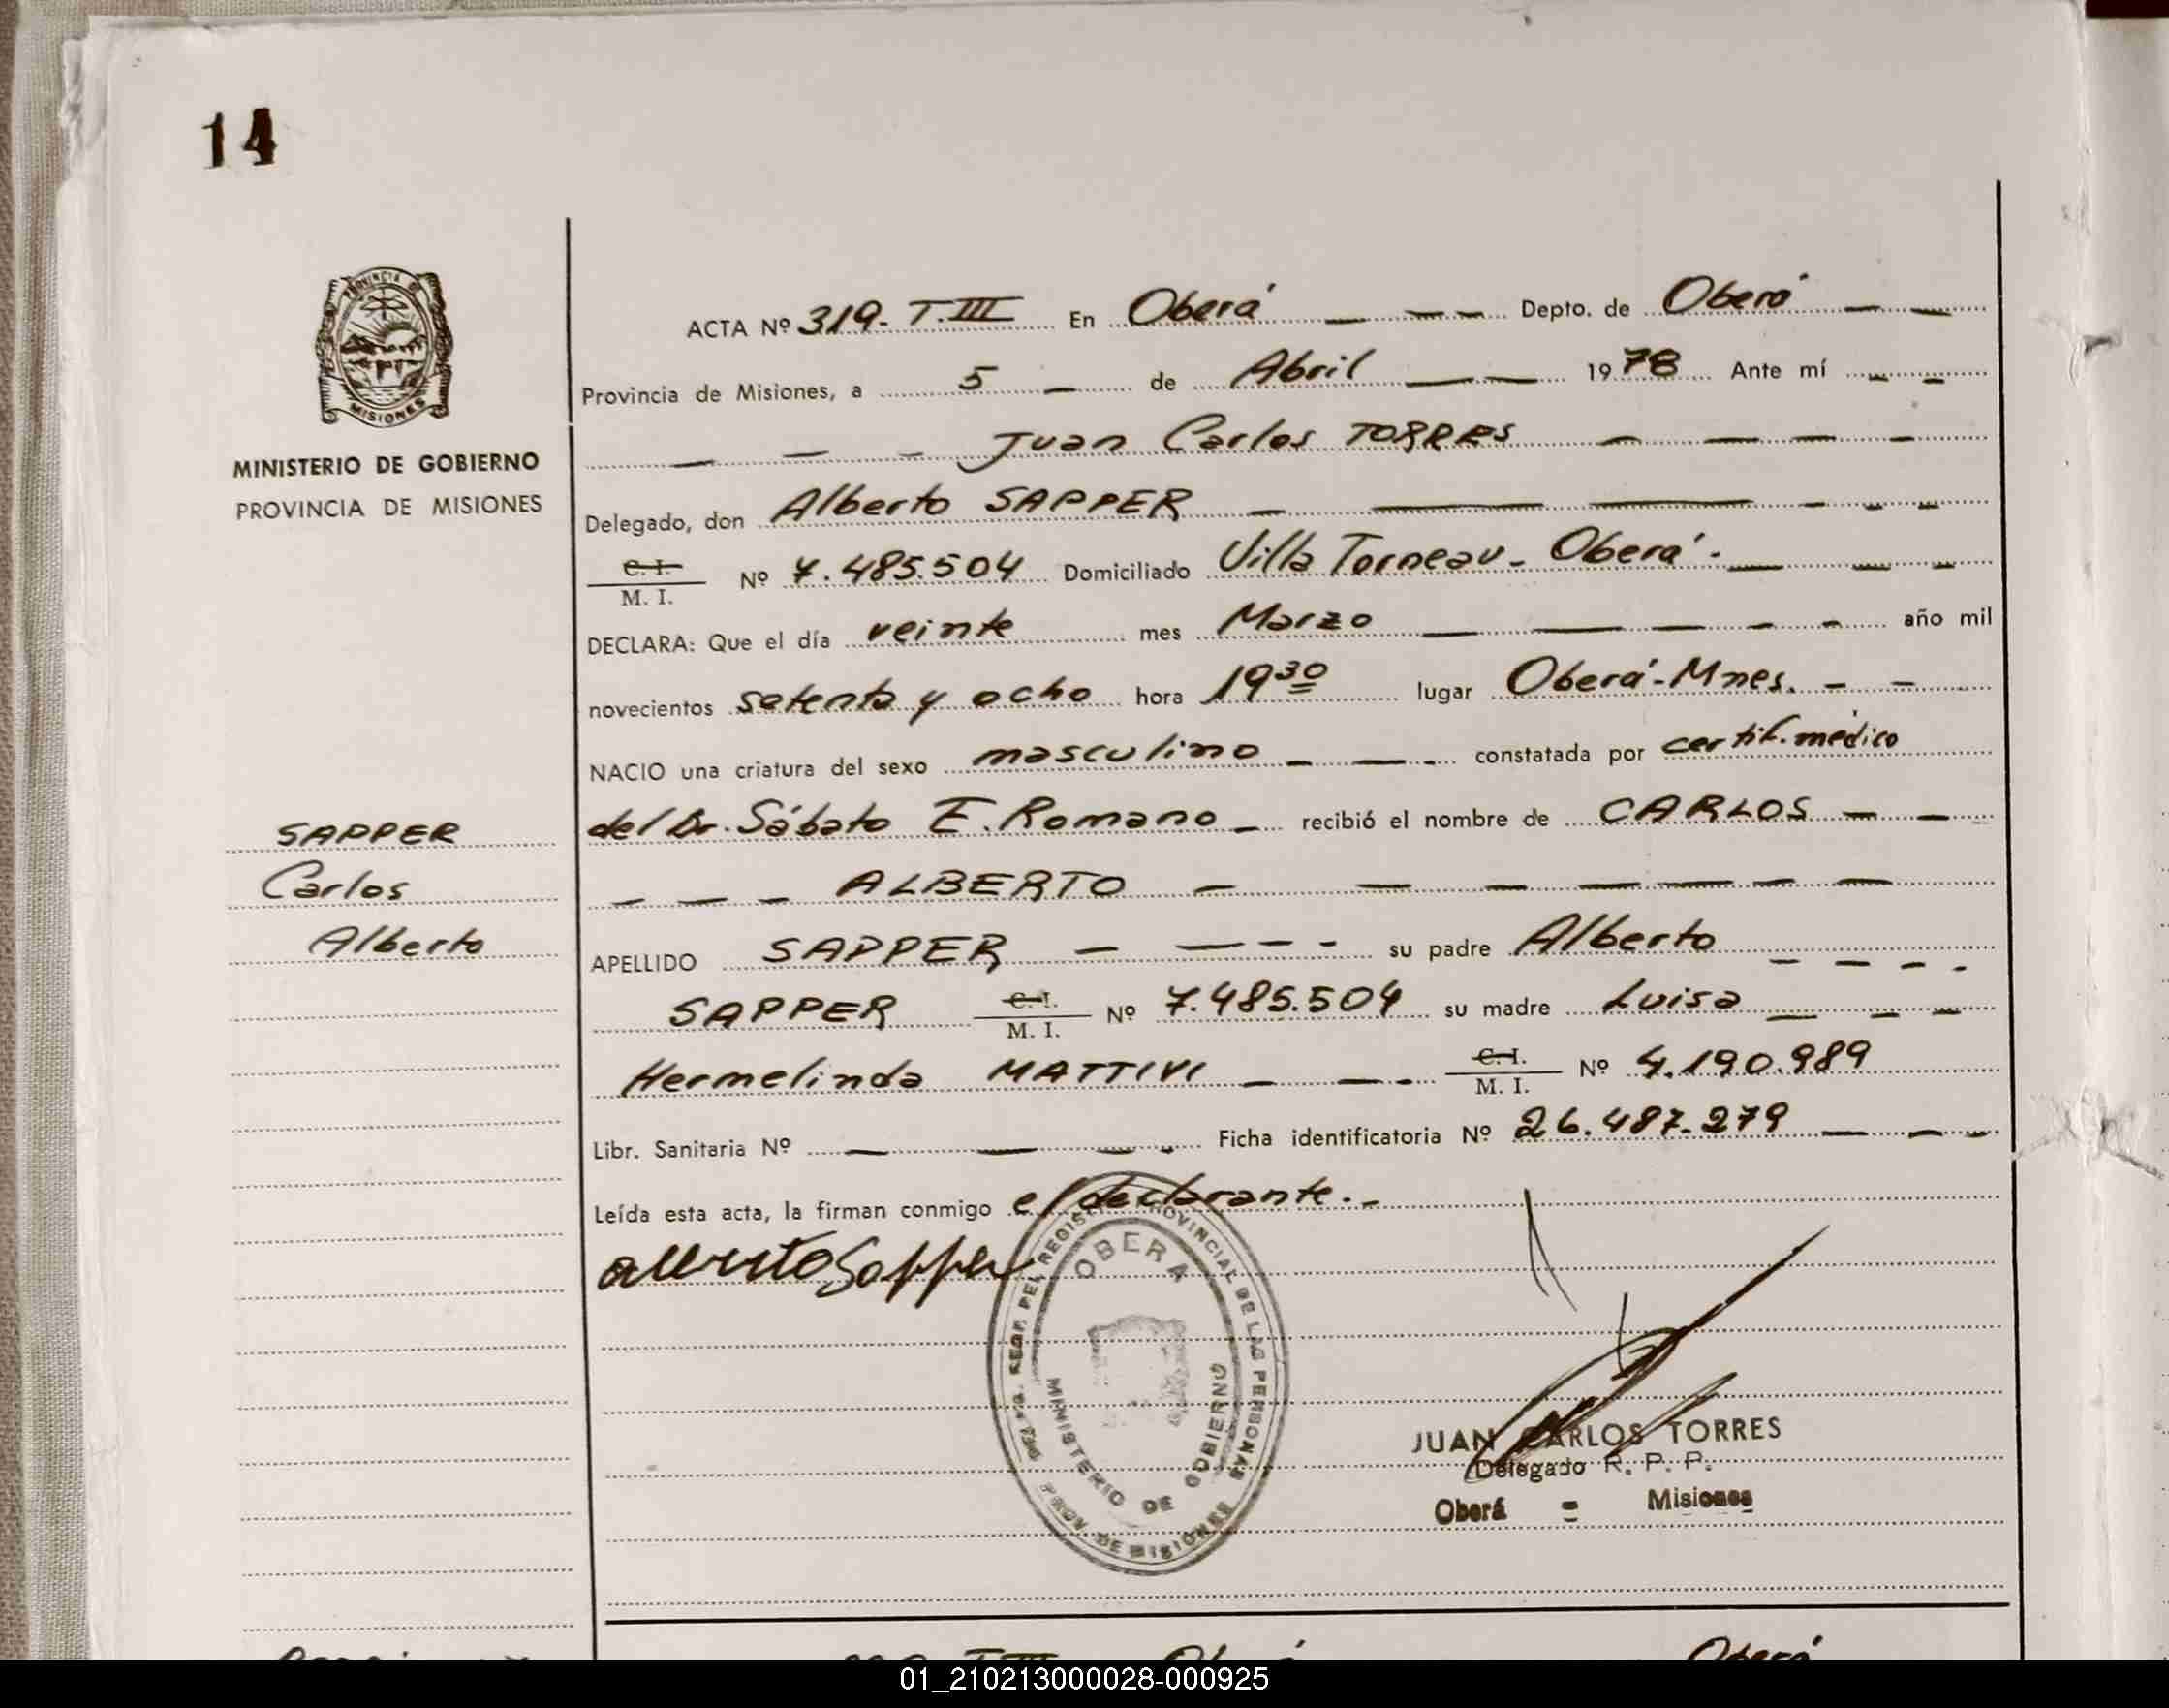 14
PROVINCIA DE
MISIONES
MINISTERIO DE GOBIERNO
PROVINCIA DE MISIONES
SAPPER
Carlos
Alberto
ACTA Nº 319. T. III En Oberá Depto. de Oberá
Provincia de Misiones, a 5 de Abril 1978 Ante mí
Juan Carlos TORRES
Delegado, don Alberto SAPPER
C. I.
M. I. Nº 7.485.504 Domiciliado Villa Torneau - Oberá.
DECLARA: Que el día veinte mes Marzo año mil
novecientos setenta y ocho hora 19 30 lugar Oberá - Mnes.
NACIO una criatura del sexo masculino constatada por certif. médico
del Dr. Sábato E. Romano recibió el nombre de CARLOS
ALBERTO
APELLIDO SAPPER su padre Alberto
SAPPER C. I.
M. I. Nº 7.485.504 su madre Luisa
Hermelinda MATTIVI C. I.
M. I. Nº 4.190.989
Libr. Sanitaria Nº Ficha identificatoria Nº 26.487.279
Leída esta acta, la firman conmigo el declarante.
Alberto Sapper
OBERA
MINISTERIO DE GOBIERNO
PROVINCIAL DE LAS PERSONAS
PROV. DE MISIONES
JUAN CARLOS TORRES
Delegado R. P. P.
Oberá - Misiones
01_210213000028-000925